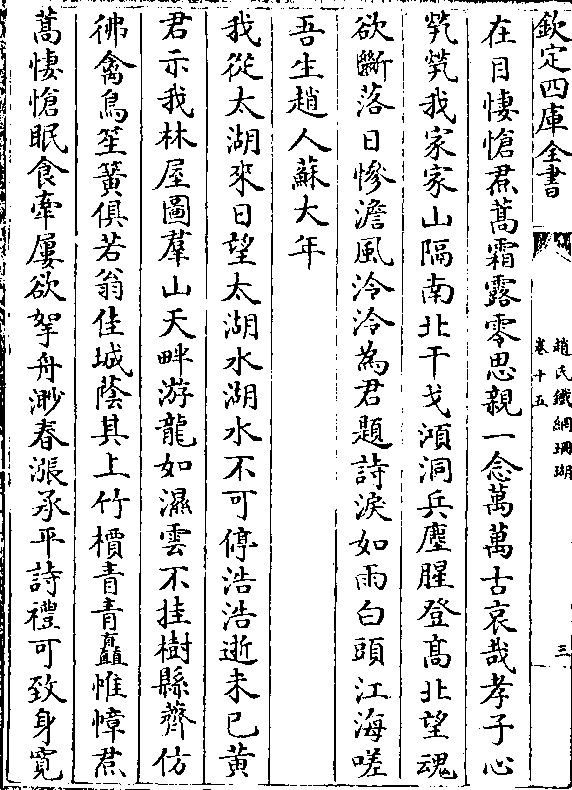 欽定四庫全書
趙氏鐵網珊瑚
卷十五
三
在目悽愴焄蒿霜露零思親一念萬萬古哀哉孝子心
煢煢我家家山隔南北干戈澒洞兵塵腥登高北望魂
欲斷落日慘澹風泠泠為君題詩淚如雨白頭江海嗟
吾生趙人蘇大年
我從太湖來日望太湖水湖水不可停浩浩逝未已黃
君示我林屋圖羣山天畔游龍如濕雲不挂樹縣薺仿
彿禽鳥笙簧俱若翁佳城蔭其上竹檟青青矗惟幛焄
蒿悽愴眠食牽屢欲拏舟渺春漲承平詩禮可致身寛